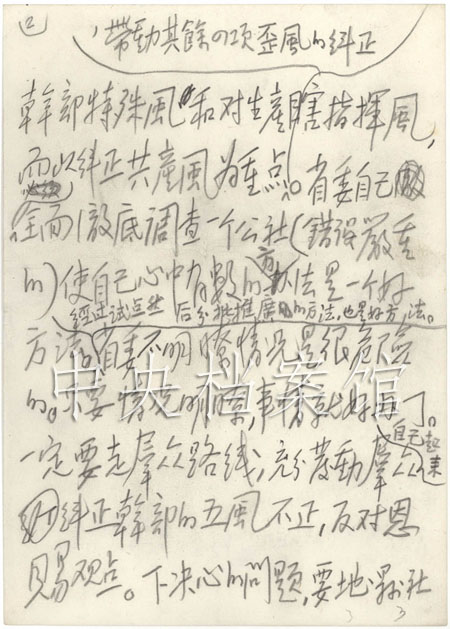 ②
帶動其餘四項歪風的糾正
幹部特殊風和对生產瞎指揮風,
而以糾正共產風為重点。省委自己
全面徹底調查一个公社(錯誤嚴重
的)使自己心中有數的方法是一个好
經過試点然后分批推廣的方法,也是好方法。
方法。省委不明瞭情况是很危险
的。只要情况明瞭,事情就好办了。
一定要走羣众路线,充分發動羣众
自己起来
糾正幹部的五風不正,反对恩
賜观点。下决心的問題,要地、縣、社
中央档案馆